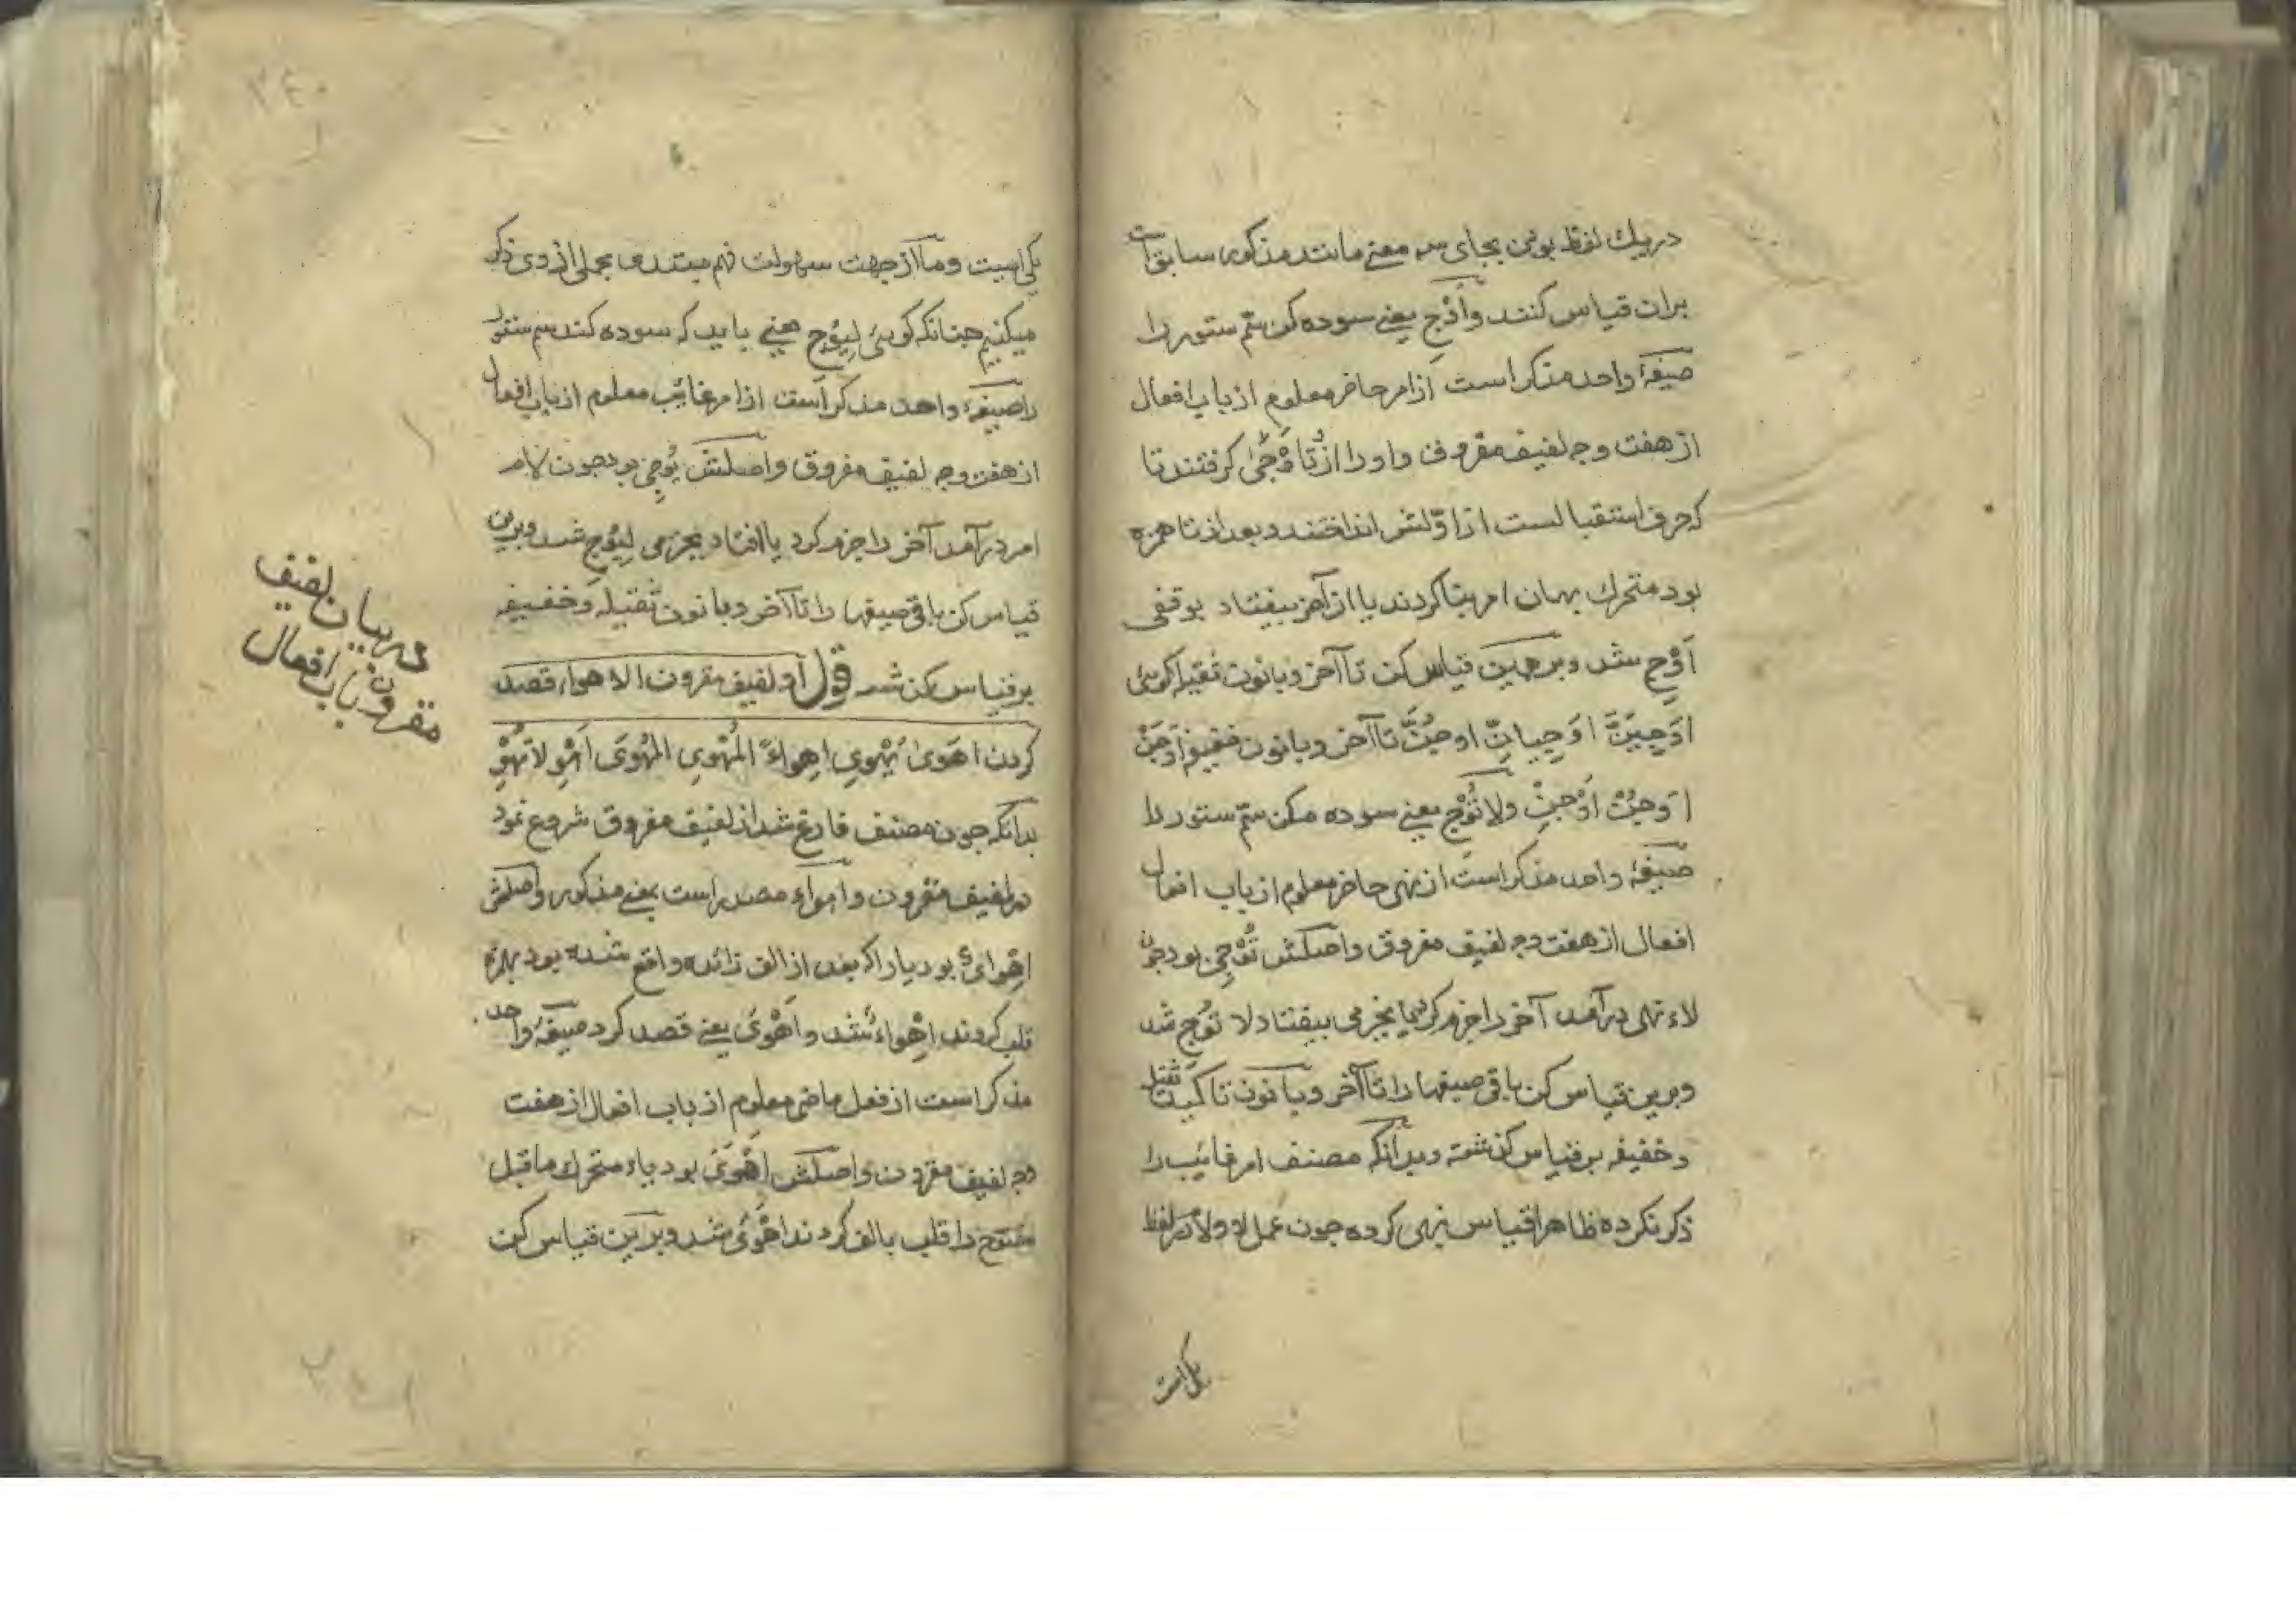 در یك لفظ بودن بجای سه معنی مانند مذکور سابق است
بران قیاس کنند وأَوْجِ یعنی سوده کن سمّ ستور را
صیغهٔ واحد مذکر است از امر حاضر معلوم از باب افعال
از هفت وجه لفیف مفروق واو را از تُأَوْجِیُ گرفتند تا
که حرف استقبا لست از اوّلش انداختند و بعد از تا همزه
بود متحرك بهمان امر بنا کردند یا از آخر بیفتاد بوقفی
أَوْجِ شد و برهمین قیاس کن تا آخر و بانون ثقیله کوئی
اَوْجِیَنَّ اَوْجِیانِّ اوجُنَّ تا آخر و بانون خفیفه اَوْجِیَنْ
اَوْجُنْ اَوْجِنْ ولا تُوْجِ یعنی سوده مکن سمّ ستور را
صیغهٔ واحد مذکر است از نهی حاضر معلوم از باب افعال
افعال از هفت وجه لفیف مفروق واصلش تُوْجِی بود چون
لاء نهی درآمد آخر را جزم کرد یا بجزمی بیفتاد لا تُوْجِ شد
وبرین قیاس کن باقی صیغها را تا آخر و با نون تاکید ثقیله
وخفیفه بر قیاس گذشته وبدانکه مصنف امر غائب را
ذکر نکرده ظاهرا قیاس نهی کرده چون عمل لا ولام در لفظ
یکی است
یکی است وما از جهت سهولت فهم مبتدی مجملی از وی ذکر
میکنیم چنانکه کوئی لِیُوْجِ یعنی باید که سوده کند سم ستور
را صیغهٔ واحد مذکر است از امر غائب معلوم از باب افعال
از هفت وجه لفیف مفروق واصلش یُوْجِی بود چون لام
امر درآمد آخر را جزم کرد یا افتاد بجزمی لِیُوْجِ شد وبرین
قیاس کن باقی صیغها را تا آخر و بانون ثقیله وخفیفه
بر قیاس کن شد قوله أو لفیف مقرون الاهواء قصد
کردن اَهْوَیٰ یُهْوِی اِهواءً المُهْوِی المُهْوَی اَهْوِ لا تُهْوِ
بدانکه چون مصنف فارغ شد از لفیف مفروق شروع نمود
در لفیف مقرون واهواء مصدر است بمعنی مذکور واصلش
اِهْوایٌ بود یا را که بعد از الف زائده واقع شده بود بهمزه
قلب کردند اِهْواء شد واَهْوَیٰ یعنی قصد کرد صیغهٔ واحد
مذکر است از فعل ماضی معلوم از باب افعال از هفت
وجه لفیف مقرون واصلش اَهْوَیَ بود یاء متحرك ماقبل
مفتوح را قلب بالف کردند اَهْوَیٰ شد وبرین قیاس کن
در بیان لفیف
مقرون از باب افعال
۲۴۰